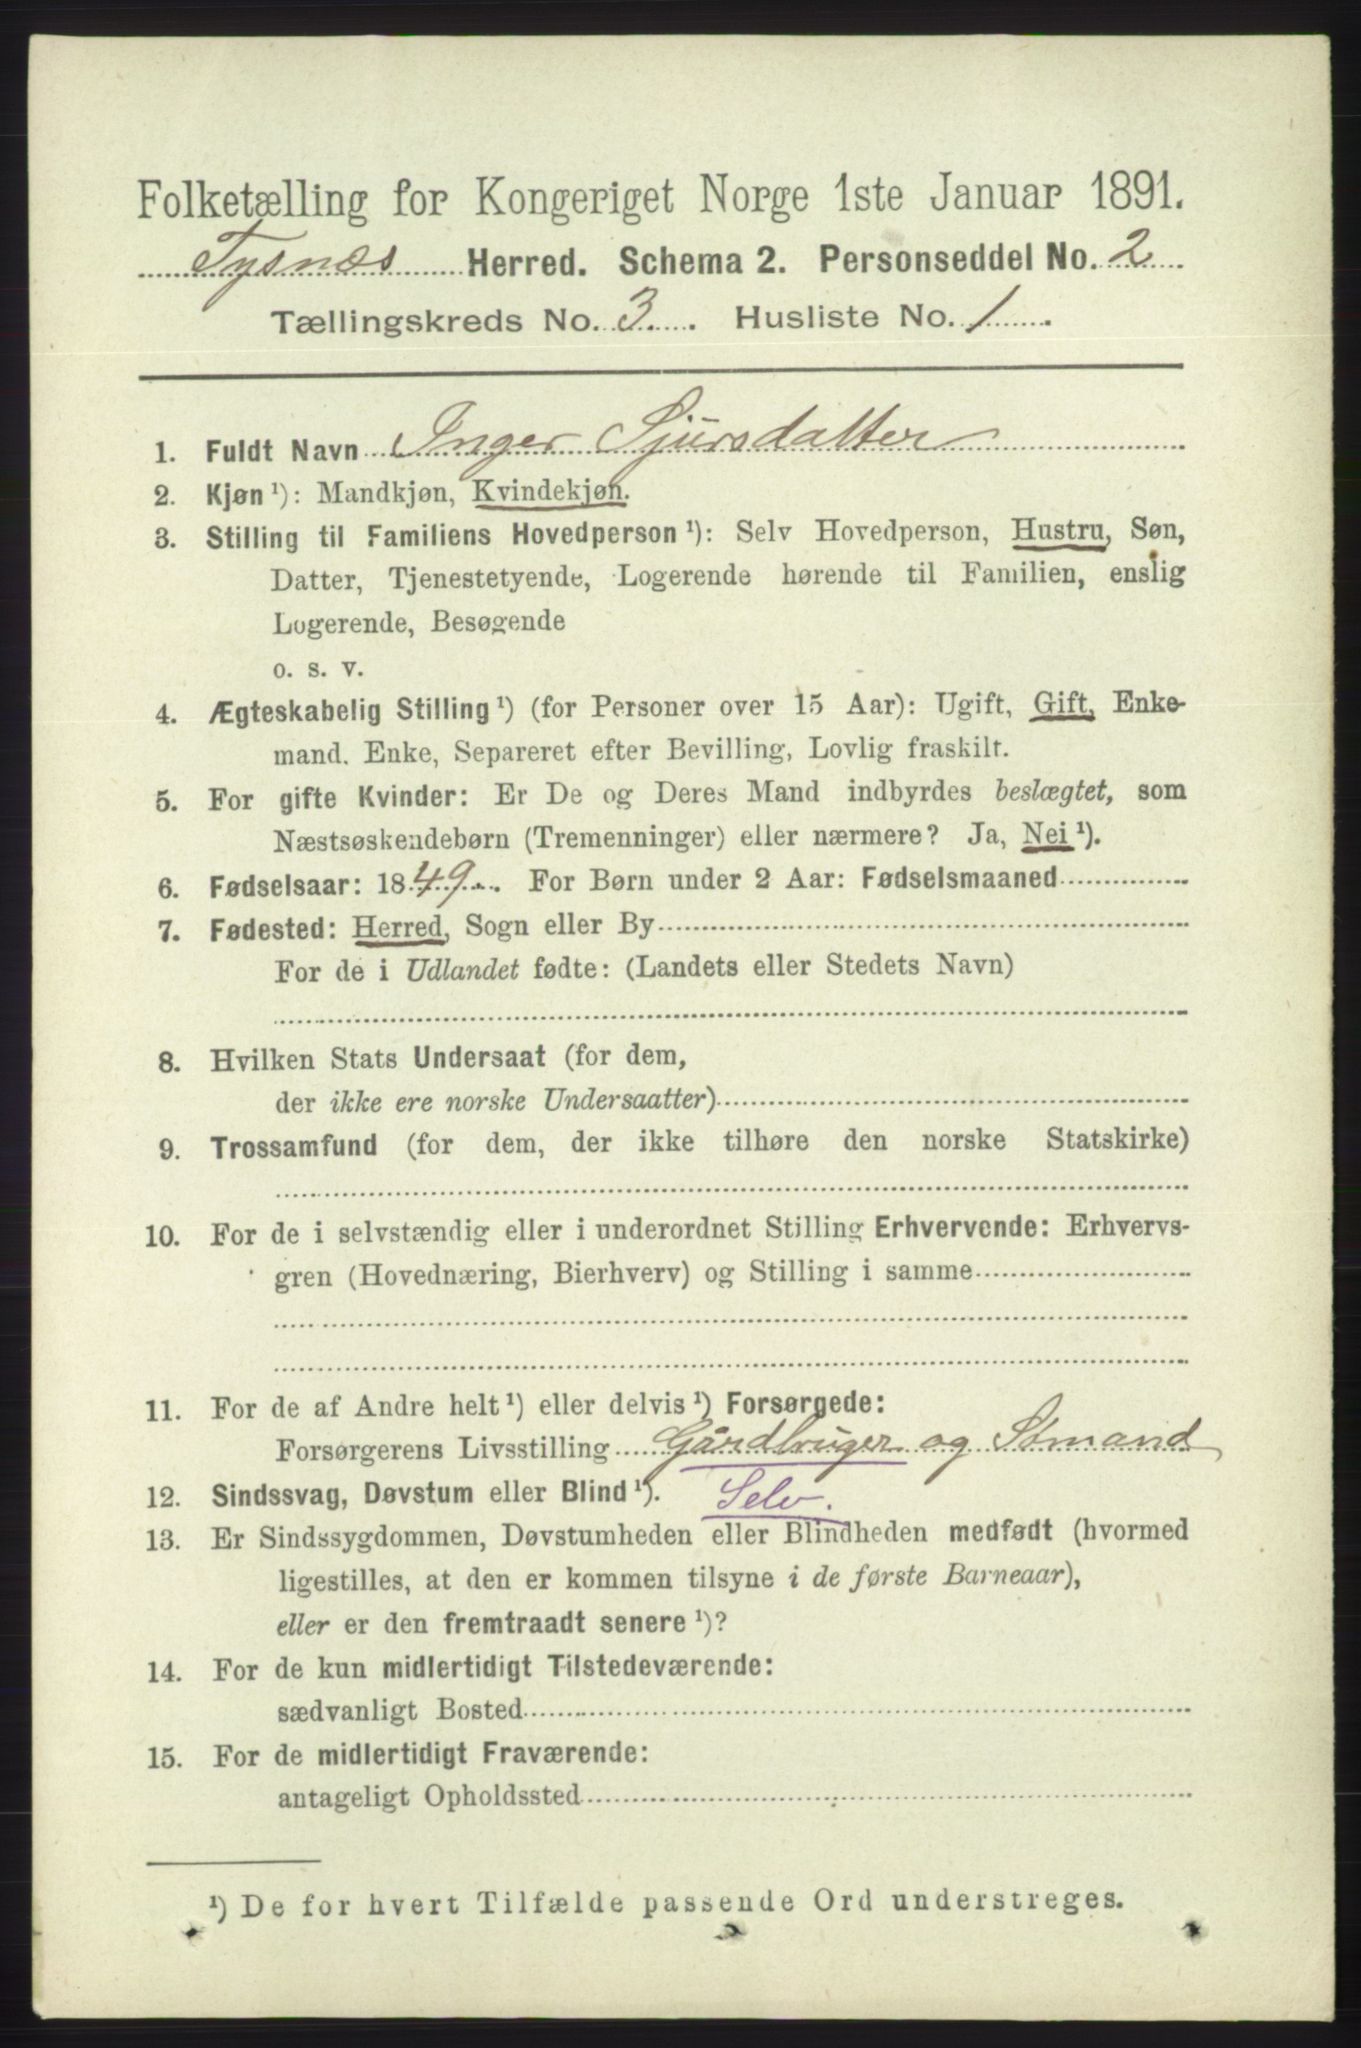 Folketælling for Kongeriget Norge 1ste Januar 1891.
Tysnæs Herred. Schema 2. Personseddel No. 2
Tællingskreds No. 3. Husliste No. 1
1. Fuldt Navn Inger Sjursdatter
2. Kjøn¹): Mandkjøn, Kvindekjøn.
3. Stilling til Familiens Hovedperson¹): Selv Hovedperson, Hustru, Søn,
Datter, Tjenestetyende, Logerende hørende til Familien, enslig
Logerende, Besøgende
o. s. v.
4. Ægteskabelig Stilling¹) (for Personer over 15 Aar): Ugift, Gift, Enke-
mand, Enke, Separeret efter Bevilling, Lovlig fraskilt.
5. For gifte Kvinder: Er De og Deres Mand indbyrdes beslægtet, som
Næstsøskendebørn (Tremenninger) eller nærmere? Ja, Nei¹).
6. Fødselsaar: 1849. For Børn under 2 Aar: Fødselsmaaned
7. Fødested: Herred, Sogn eller By
For de i Udlandet fødte: (Landets eller Stedets Navn)
8. Hvilken Stats Undersaat (for dem,
der ikke ere norske Undersaatter)
9. Trossamfund (for dem, der ikke tilhøre den norske Statskirke)
10. For de i selvstændig eller i underordnet Stilling Erhvervende: Erhvervs-
gren (Hovednæring, Bierhverv) og Stilling i samme
11. For de af Andre helt¹) eller delvis¹) Forsørgede:
Forsørgerens Livsstilling Gårdbruger og Sømand
12. Sindssvag, Døvstum eller Blind¹). Selv.
13. Er Sindssygdommen, Døvstumheden eller Blindheden medfødt (hvormed
ligestilles, at den er kommen tilsyne i de første Barneaar),
eller er den fremtraadt senere¹)?
14. For de kun midlertidigt Tilstedeværende:
sædvanligt Bosted
15. For de midlertidigt Fraværende:
antageligt Opholdssted
¹) De for hvert Tilfælde passende Ord understreges.